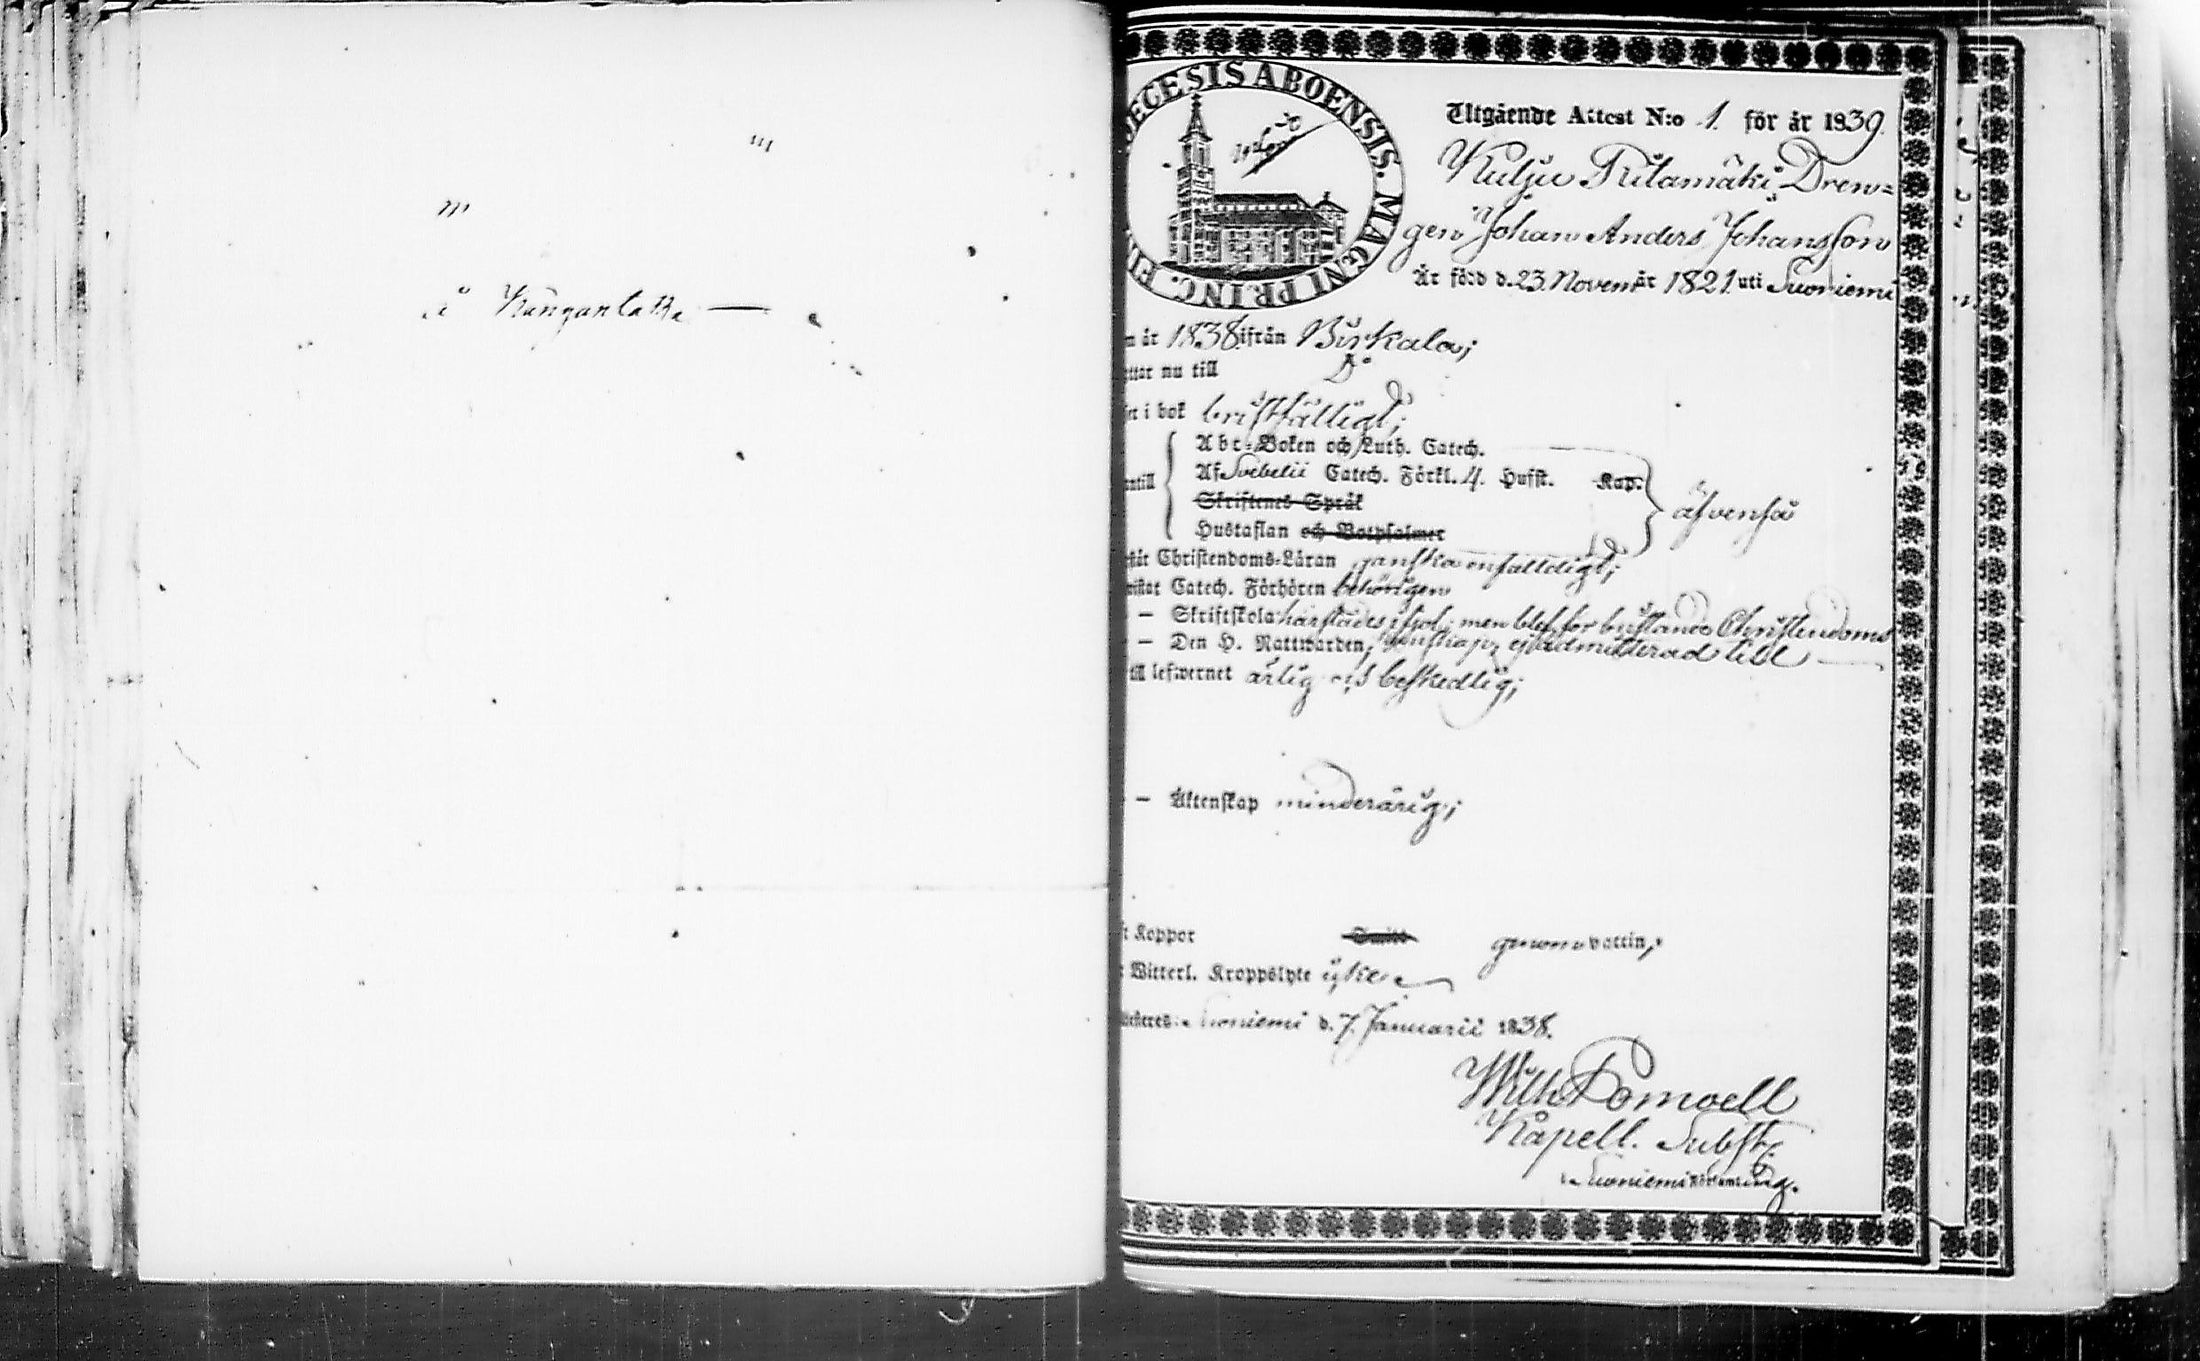 å Kangantaka —
DIOECESIS ABOENSIS. MAGNI PRINC. FI
Utgående Attest N:o 1. för år 1839.
Kulju Riitamäki Dren=
gen Johan Anders Johansson
Är född d. 23 Novembr 1821 uti Suoniemi
n år 1838 ifrån Birkala;
ttar nu till D:o
et i bok bristfälligt;
Abc-Boken och Luth. Catech.
antill Af Svebelii Catech. Förkl. 4. Hufst. Kap. äfvenså
Skriftenes Språk
Hustaflan och Botpsalmer
står Christendoms-Läran ganska enfaldigt;
vistat Catech. Förhören behörigen
— Skriftskola härstädes men blef för bristande Christendoms
— Den H. Nattwarden, kunskap, ej admitterad till —
till lefwernet ärlig och beskedlig;
— Äktenskap minderårig;
t Koppor genom vaccin,
t Witterl. Kroppslyte icke
Suoniemi d. 7. Januarii 1838.
Wilh. Pomoell
Kapell. Subst.
i Suoniemi församling.